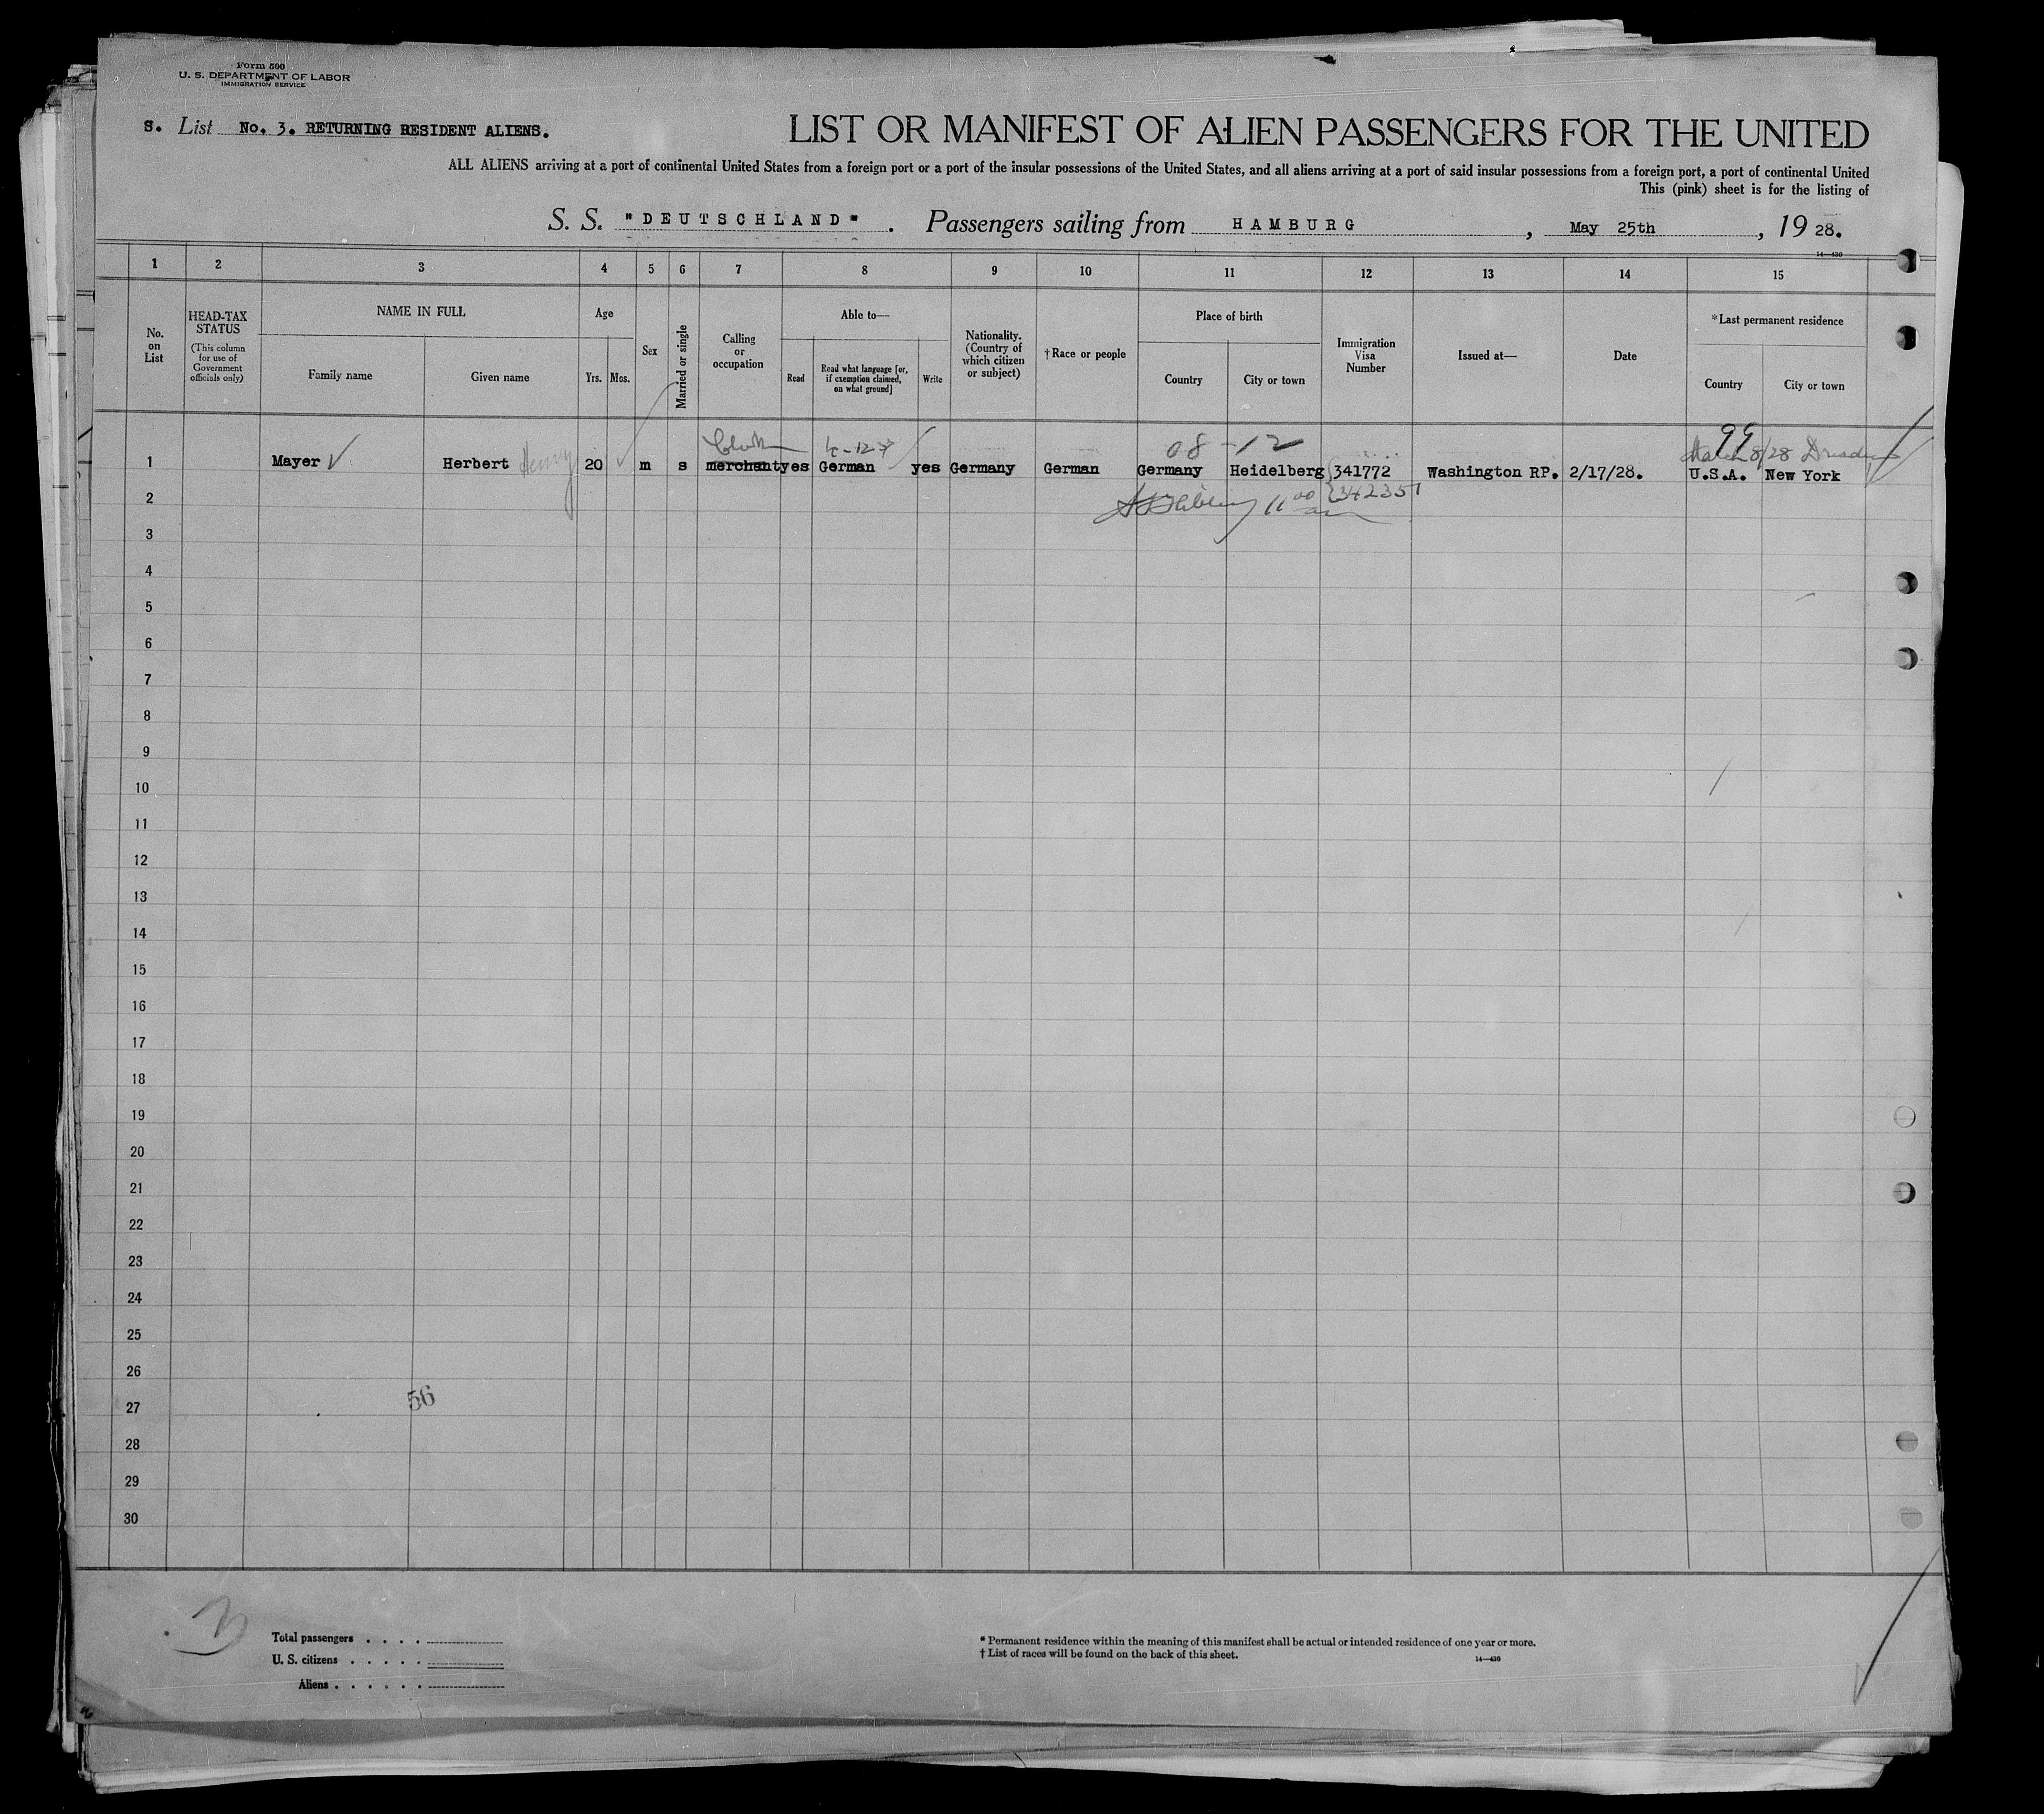 Form 500
U. S. DEPARTMENT OF LABOR
IMMIGRATION SERVICE
S. List No. 3. RETURNING RESIDENT ALIENS.
LIST OR MANIFEST OF ALIEN PASSENGERS FOR THE UNITED
ALL ALIENS arriving at a port of continental United States from a foreign port or a port of the insular possessions of the United States, and all aliens arriving at a port of said insular possessions from a foreign port, a port of continental United
This (pink) sheet is for the listing of
S. S. "DEUTSCHLAND". Passengers sailing from HAMBURG, May 25th, 19 28.
14—430
1 2 3 4 5 6 7 8 9 10 11 12 13 14 15
No. on List
HEAD-TAX STATUS (This column for use of Government officials only)
NAME IN FULL
Family name Given name
Age
Yrs. Mos.
Sex
Married or single
Calling or occupation
Able to—
Read
Read what language [or, if exemption claimed, on what ground]
Write
Nationality. (Country of which citizen or subject)
† Race or people
Place of birth
Country City or town
Immigration Visa Number
Issued at—
Date
*Last permanent residence
Country City or town
08-12 99
March 8/28 Dresden
1 Mayer Herbert Henry 20 m s merchant yes German yes Germany German Germany Heidelberg 341772 Washington RP. 2/17/28. U.S.A. New York
2 11 00 am 342357
3
4
5
6
7
8
9
10
11
12
13
14
15
16
17
18
19
20
21
22
23
24
25
26
56
27
28
29
30
Total passengers . . . .
U. S. citizens . . . . .
Aliens . . . . . .
* Permanent residence within the meaning of this manifest shall be actual or intended residence of one year or more.
† List of races will be found on the back of this sheet.
14—430